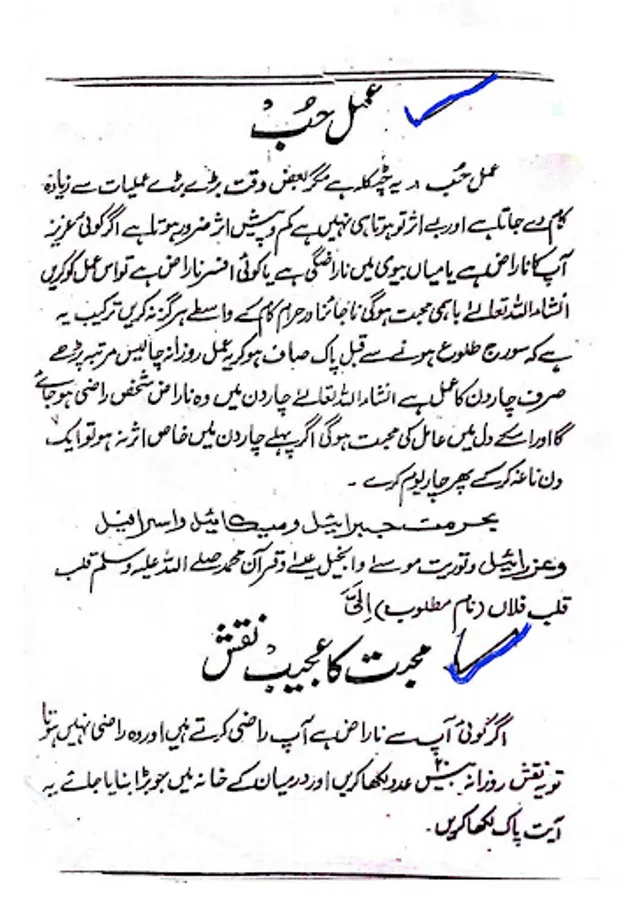 عمل حُب
عمل حُب ۔ یہ چٹکلہ ہے مگر بعض وقت بڑے بڑے عملیات سے زیادہ
کام دے جاتا ہے اور بے اثر تو ہوتا ہی نہیں ہے کم و پیش اثر ضرور ہوتا ہے اگر کوئی عزیز
آپ کا ناراض ہے یا میاں بیوی میں ناراضگی ہے یا کوئی افسر ناراض ہے تو اس عمل کو کریں
انشاء اللہ تعالےٰ باہمی محبت ہوگی ناجائز اور حرام کام کے واسطے ہرگز نہ کریں ترکیب یہ
ہے کہ سورج طلوع ہونے سے قبل پاک صاف ہو کر یہ عمل روزانہ چالیس مرتبہ پڑھے
صرف چار دن کا عمل ہے انشاء اللہ تعالےٰ چار دن میں وہ ناراض شخص راضی ہو جائے
گا اور اسکے دل میں عامل کی محبت ہوگی اگر پہلے چار دن میں خاص اثر نہ ہو تو ایک
دن ناغہ کر کے پھر چار یوم کرے ۔
بحرمت جبرائیل و میکائیل و اسرافیل
وعزرائیل و توریت موسےٰ و انجیل عیسےٰ و قرآن محمد صلے اللہ علیہ وسلم قلب
قلب فلاں (نام مطلوب) اِلَیَّ
محبت کا عجیب نقش
اگر کوئی آپ سے ناراض ہے آپ راضی کرتے ہیں اور وہ راضی نہیں ہوتا
تو یہ نقش روزانہ بیس ۲۰ عدد لکھا کریں اور درمیان کے خانہ میں جو بڑا بنایا جائے یہ
آیت پاک لکھا کریں ۔